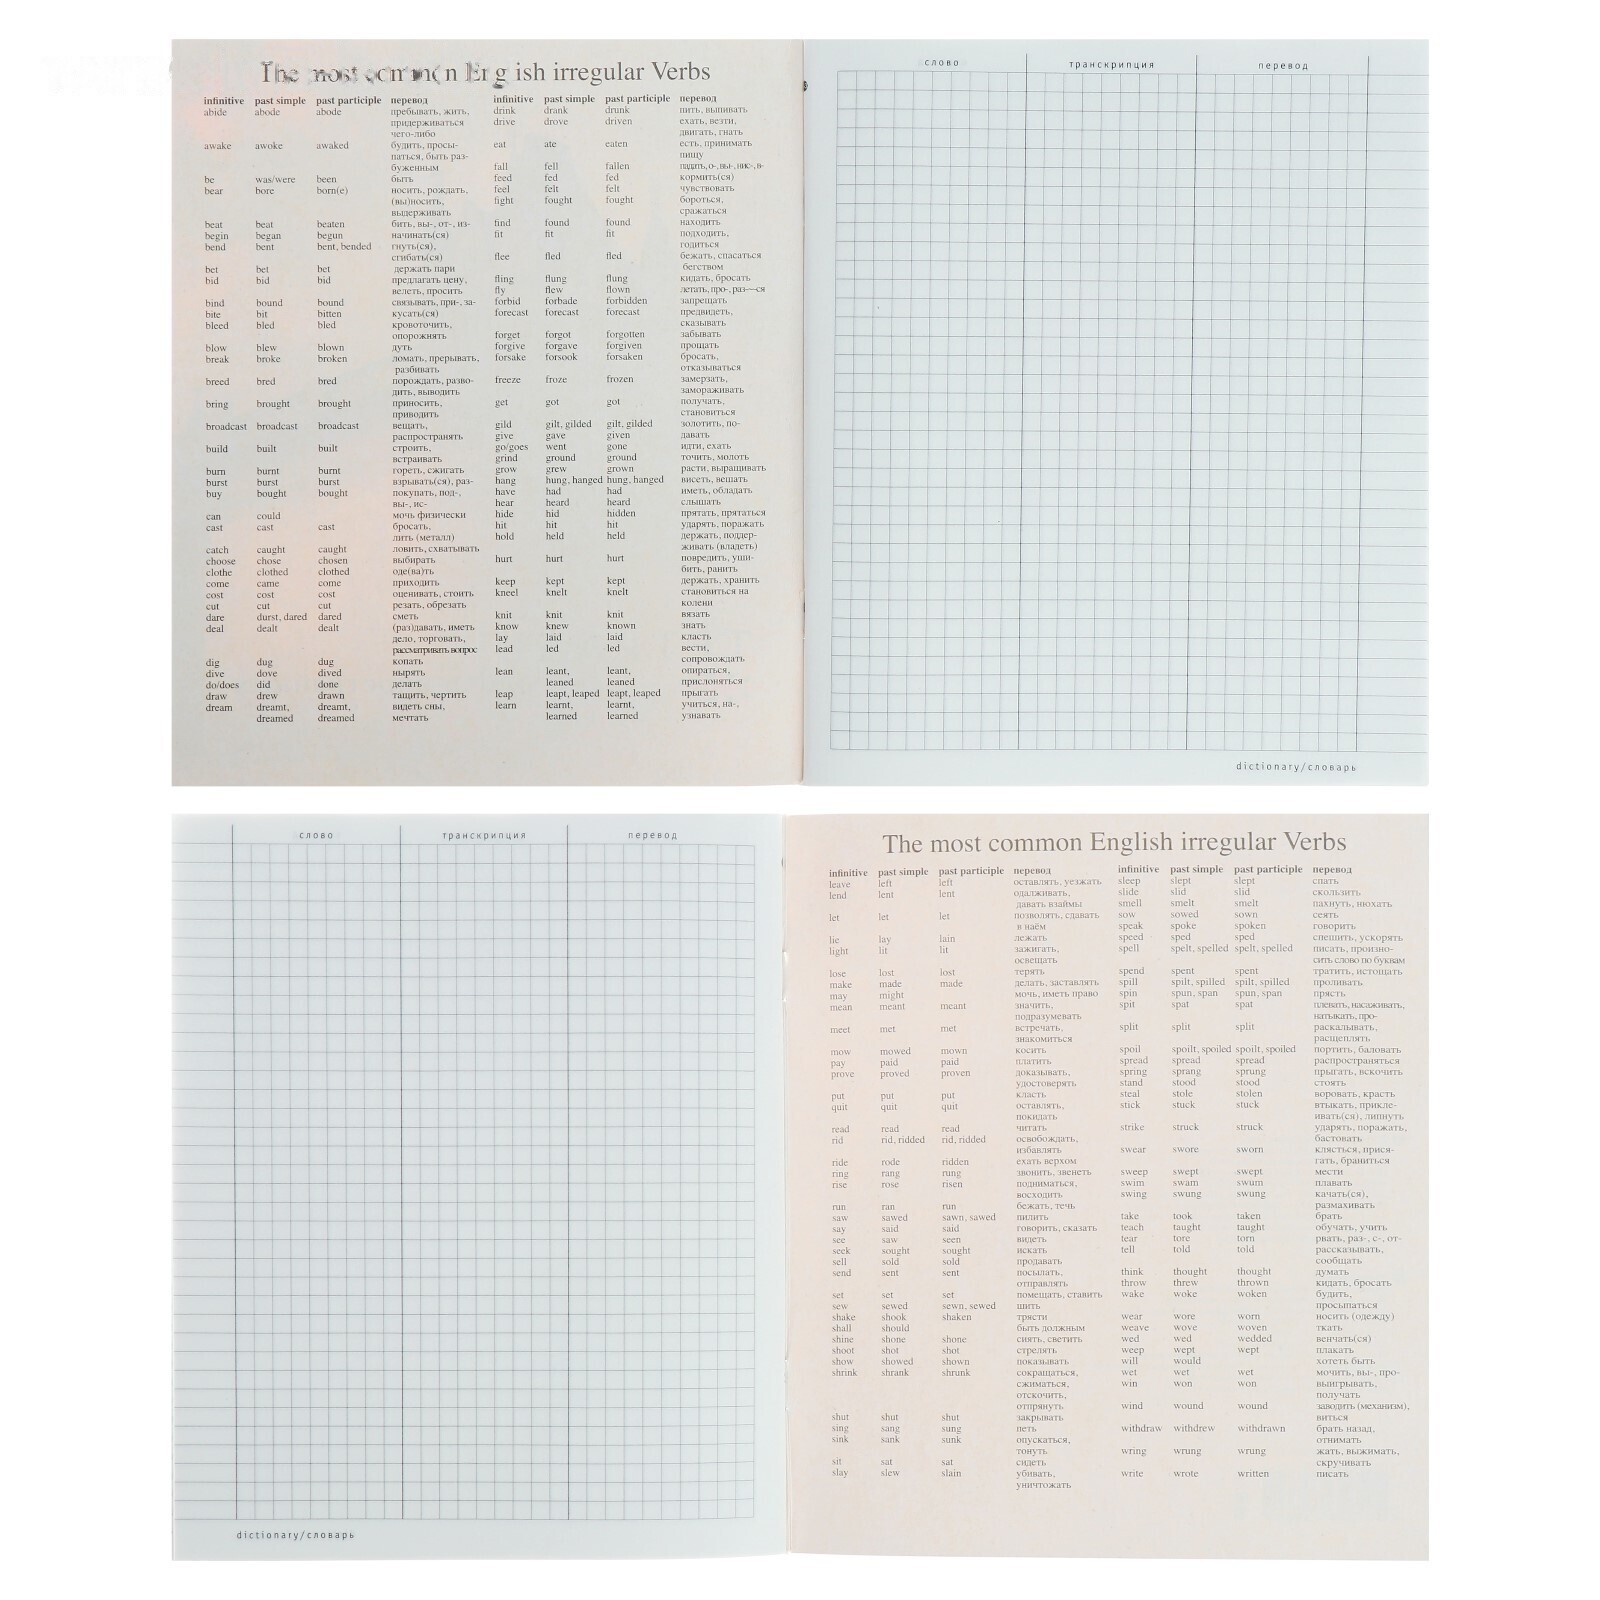 The most common English irregular Verbs
infinitive past simple past participle перевод
abide abode abode пребывать, жить,
придерживаться
чего-либо
awake awoke awaked будить, просы-
паться, быть раз-
буженным
be was/were been быть
bear bore born(e) носить, рождать,
(вы)носить,
выдерживать
beat beat beaten бить, вы-, от-, из-
begin began begun начинать(ся)
bend bent bent, bended гнуть(ся),
сгибать(ся)
bet bet bet держать пари
bid bid bid предлагать цену,
велеть, просить
bind bound bound связывать, при-, за-
bite bit bitten кусать(ся)
bleed bled bled кровоточить,
опорожнять
blow blew blown дуть
break broke broken ломать, прерывать,
разбивать
breed bred bred порождать, разво-
дить, выводить
bring brought brought приносить,
приводить
broadcast broadcast broadcast вещать,
распространять
build built built строить,
встраивать
burn burnt burnt гореть, сжигать
burst burst burst взрывать(ся), раз-
buy bought bought покупать, под-,
вы-, ис-
can could мочь физически
cast cast cast бросать,
лить (металл)
catch caught caught ловить, схватывать
choose chose chosen выбирать
clothe clothed clothed оде(ва)ть
come came come приходить
cost cost cost оценивать, стоить
cut cut cut резать, обрезать
dare durst, dared dared сметь
deal dealt dealt (раз)давать, иметь
дело, торговать,
рассматривать вопрос
dig dug dug копать
dive dove dived нырять
do/does did done делать
draw drew drawn тащить, чертить
dream dreamt, dreamt, видеть сны,
dreamed dreamed мечтать
infinitive past simple past participle перевод
drink drank drunk пить, выпивать
drive drove driven ехать, везти,
двигать, гнать
eat ate eaten есть, принимать
пищу
fall fell fallen падать, о-, вы-, нис-, в-
feed fed fed кормить(ся)
feel felt felt чувствовать
fight fought fought бороться,
сражаться
find found found находить
fit fit fit подходить,
годиться
flee fled fled бежать, спасаться
бегством
fling flung flung кидать, бросать
fly flew flown летать, про-, раз-—ся
forbid forbade forbidden запрещать
forecast forecast forecast предвидеть,
сказывать
forget forgot forgotten забывать
forgive forgave forgiven прощать
forsake forsook forsaken бросать,
отказываться
freeze froze frozen замерзать,
замораживать
get got got получать,
становиться
gild gilt, gilded gilt, gilded золотить, по-
give gave given давать
go/goes went gone идти, ехать
grind ground ground точить, молоть
grow grew grown расти, выращивать
hang hung, hanged hung, hanged висеть, вешать
have had had иметь, обладать
hear heard heard слышать
hide hid hidden прятать, прятаться
hit hit hit ударять, поражать
hold held held держать, поддер-
живать (владеть)
hurt hurt hurt повредить, уши-
бить, ранить
keep kept kept держать, хранить
kneel knelt knelt становиться на
колени
knit knit knit вязать
know knew known знать
lay laid laid класть
lead led led вести,
сопровождать
lean leant, leant, опираться,
leaned leaned прислоняться
leap leapt, leaped leapt, leaped прыгать
learn learnt, learnt, учиться, на-,
learned learned узнавать
слово транскрипция перевод
dictionary/словарь
слово транскрипция перевод
dictionary/словарь
The most common English irregular Verbs
infinitive past simple past participle перевод
leave left left оставлять, уезжать
lend lent lent одалживать,
давать взаймы
let let let позволять, сдавать
в наём
lie lay lain лежать
light lit lit зажигать,
освещать
lose lost lost терять
make made made делать, заставлять
may might мочь, иметь право
mean meant meant значить,
подразумевать
meet met met встречать,
знакомиться
mow mowed mown косить
pay paid paid платить
prove proved proven доказывать,
удостоверять
put put put класть
quit quit quit оставлять,
покидать
read read read читать
rid rid, ridded rid, ridded освобождать,
избавлять
ride rode ridden ехать верхом
ring rang rung звонить, звенеть
rise rose risen подниматься,
восходить
run ran run бежать, течь
saw sawed sawn, sawed пилить
say said said говорить, сказать
see saw seen видеть
seek sought sought искать
sell sold sold продавать
send sent sent посылать,
отправлять
set set set помещать, ставить
sew sewed sewn, sewed шить
shake shook shaken трясти
shall should быть должным
shine shone shone сиять, светить
shoot shot shot стрелять
show showed shown показывать
shrink shrank shrunk сокращаться,
сжиматься,
отскочить,
отпрянуть
shut shut shut закрывать
sing sang sung петь
sink sank sunk опускаться,
тонуть
sit sat sat сидеть
slay slew slain убивать,
уничтожать
infinitive past simple past participle перевод
sleep slept slept спать
slide slid slid скользить
smell smelt smelt пахнуть, нюхать
sow sowed sown сеять
speak spoke spoken говорить
speed sped sped спешить, ускорять
spell spelt, spelled spelt, spelled писать, произно-
сить слово по буквам
spend spent spent тратить, истощать
spill spilt, spilled spilt, spilled проливать
spin spun, span spun, span прясть
spit spat spat плевать, насаживать,
натыкать, про-
split split split раскалывать,
расщеплять
spoil spoilt, spoiled spoilt, spoiled портить, баловать
spread spread spread распространяться
spring sprang sprung прыгать, вскочить
stand stood stood стоять
steal stole stolen воровать, красть
stick stuck stuck втыкать, прикле-
ивать(ся), липнуть
strike struck struck ударять, поражать,
бастовать
swear swore sworn клясться, прися-
гать, браниться
sweep swept swept мести
swim swam swum плавать
swing swung swung качать(ся),
размахивать
take took taken брать
teach taught taught обучать, учить
tear tore torn рвать, раз-, с-, от-
tell told told рассказывать,
сообщать
think thought thought думать
throw threw thrown кидать, бросать
wake woke woken будить,
просыпаться
wear wore worn носить (одежду)
weave wove woven ткать
wed wed wedded венчать(ся)
weep wept wept плакать
will would хотеть быть
wet wet wet мочить, вы-, про-
win won won выигрывать,
получать
wind wound wound заводить (механизм),
виться
withdraw withdrew withdrawn брать назад,
отнимать
wring wrung wrung жать, выжимать,
скручивать
write wrote written писать